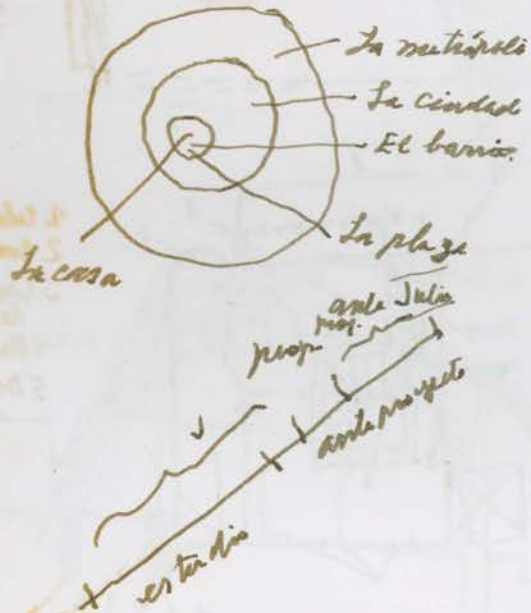 La metrópoli
La ciudad
El barrio.
La plaza
La casa
ante Julio
proy.
prop.
anteproyecto
estudio